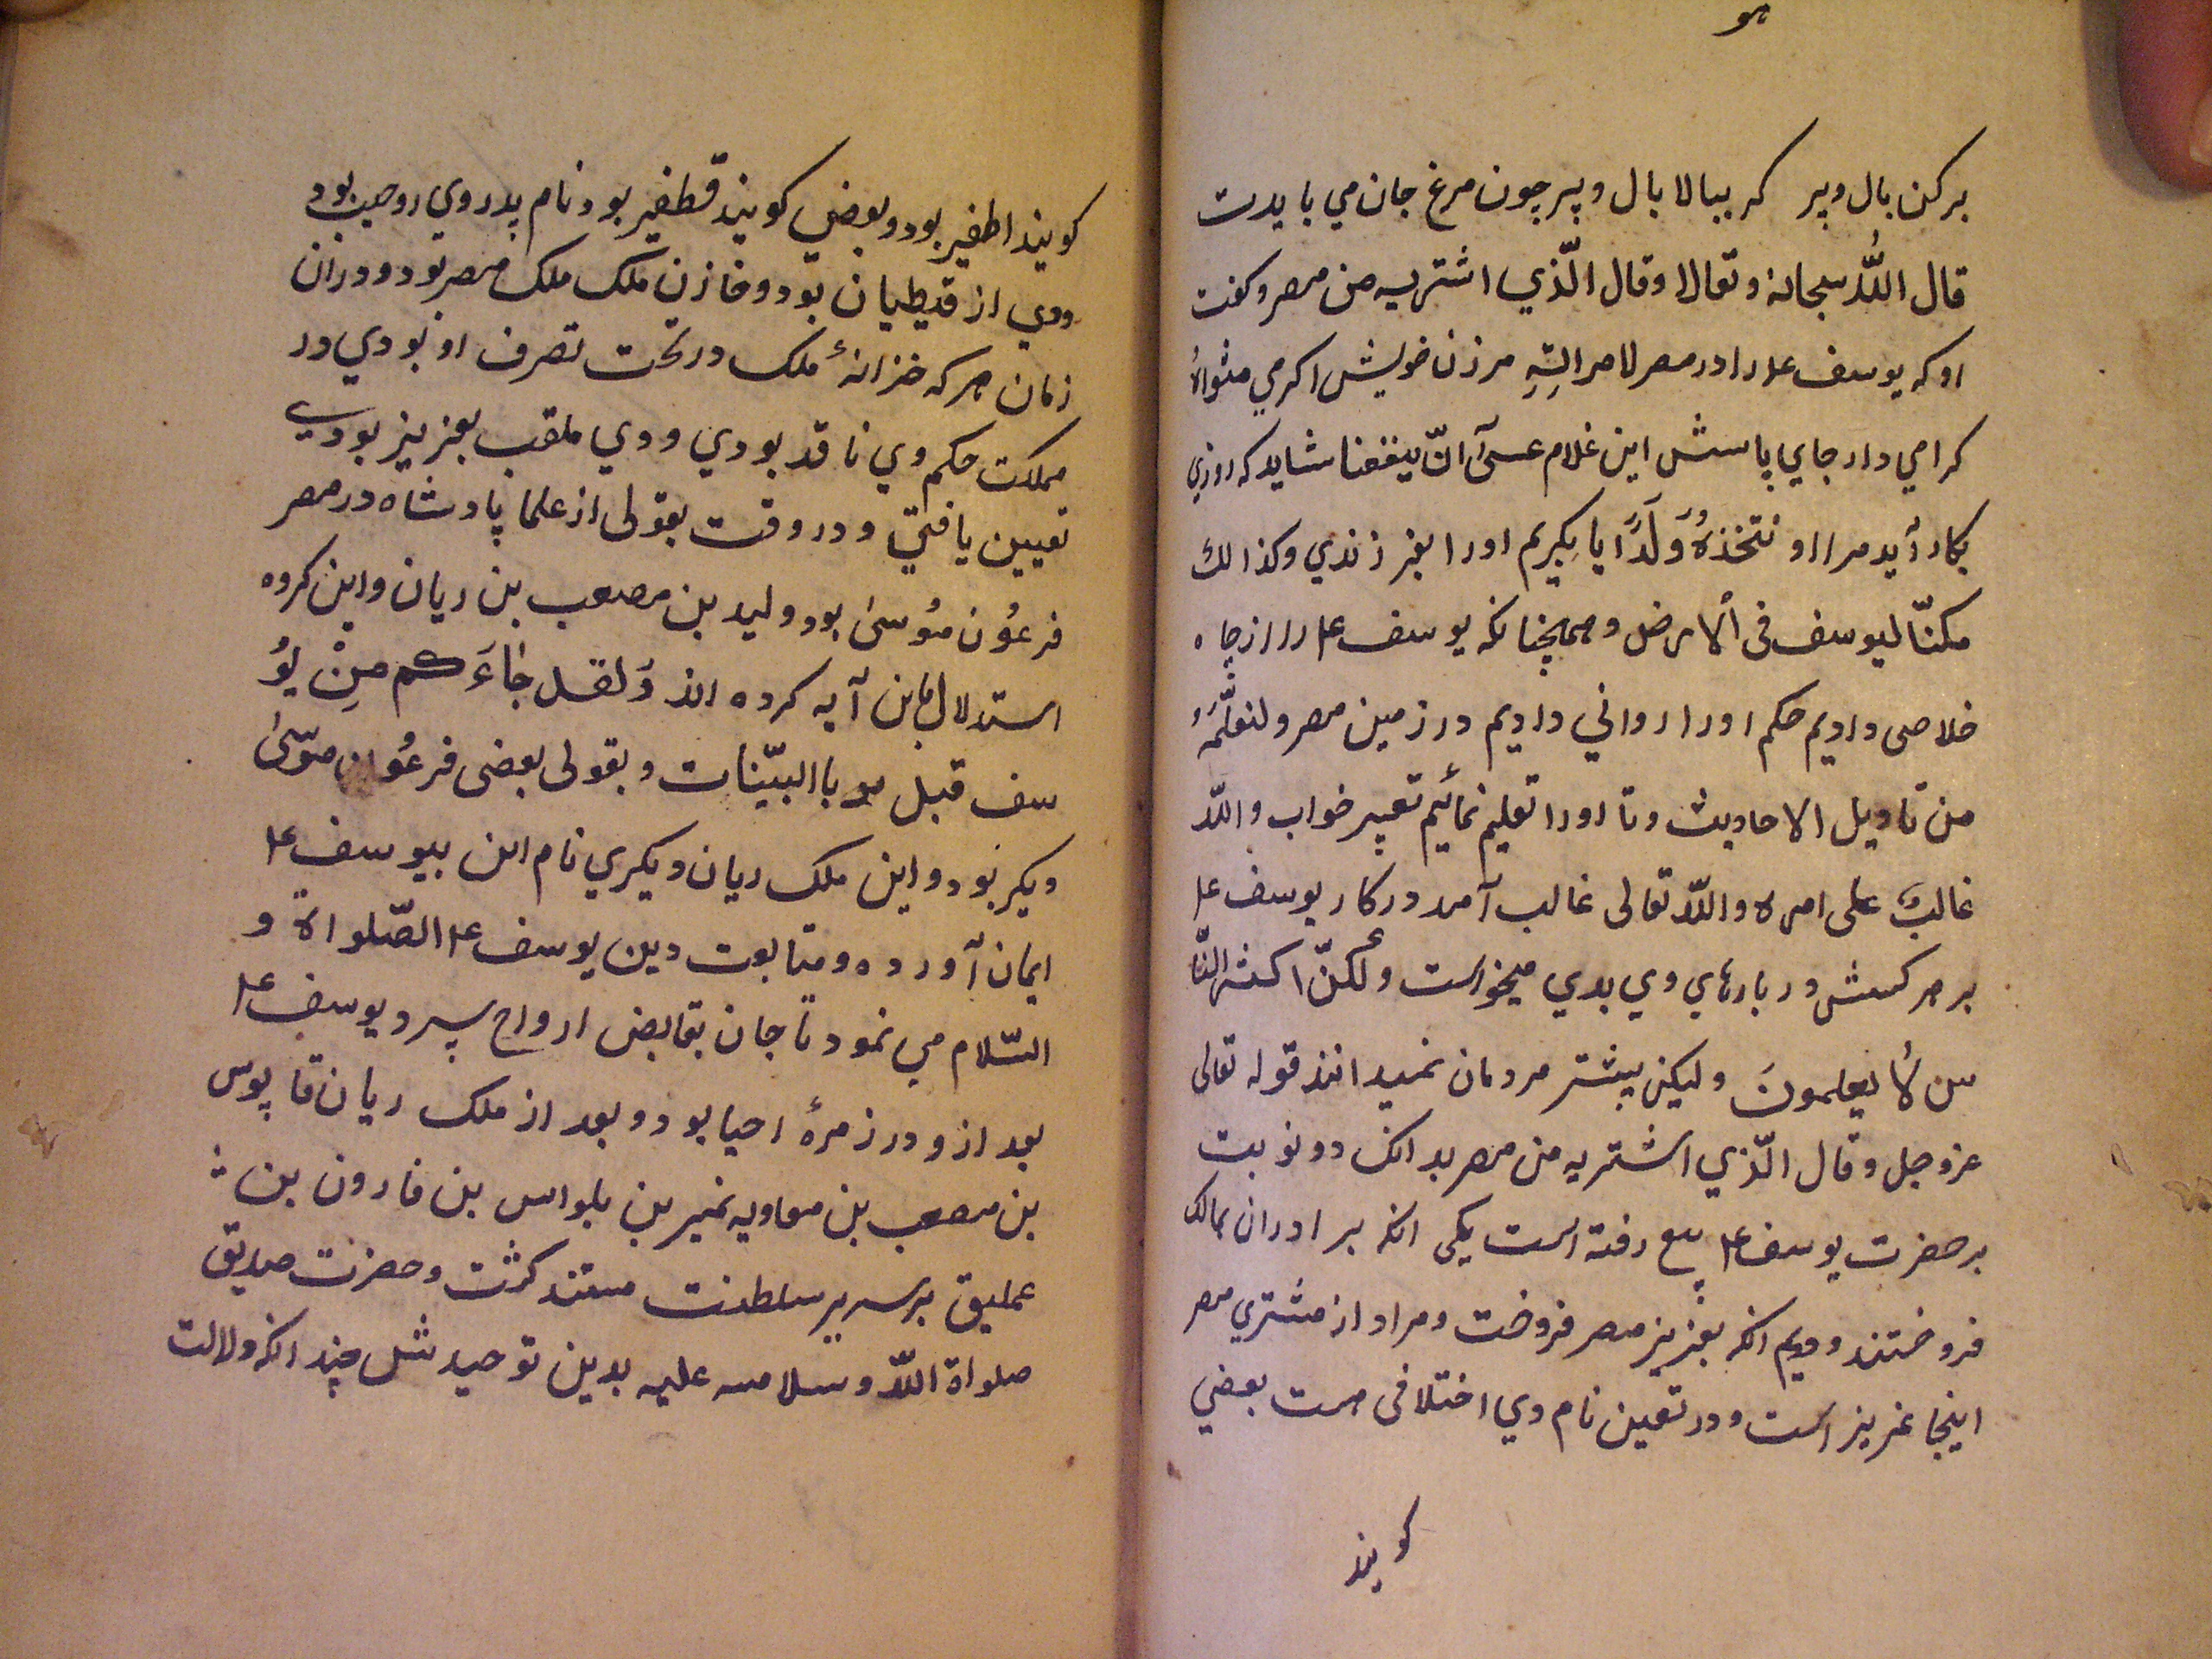 هو
برکن بال وپر که ببالا بال وپر چون مرغ جان مي بایدت
قال اللّه سبحانه وتعالا وقال الّذي اشتریه من مصر وکفت
اوکه یوسف ع‍ل‍ را در مصر لامراتِهِ مرزن خویش اکرمي مثواهُ
کرامي دار جاي باشش این غلام عسیٓ انّ ینفعنا شاید که روزي
بکار آید مرا او نتخذهُ وَلَدًا یا بکیریم اورا بفرزندي وکذالك
مکنّا لیوسف فی ألارض وهمچنانکه یوسف ع‍ل‍ را از چاه
خلاصی دادیم حکم اورا رواني دادیم در زمین مصر ولنعلّمَهُ
من تاویل الاحادیث وتا اورا تعلیم نمائیم تعبیر خواب واللّه
غالبٌ علی امره واللّه تعالی غالب آمد در کار یوسف ع‍ل‍
بر هر کسش در بارهاي وي بدي میخواست ولکنّ اکثر النّا
س لا یعلمونَ ولیکن بیشتر مردمان نمیدانند قوله تعالی
عزوجل وقال الّذي اشتریه من مصر بدانک دو نوبت
بر حضرت یوسف ع‍ل‍ بیع رفته است یکی انکه برادران بمالک
فروختند ودیم انکه بعزیز مصر فروخت ومراد از مشتري مصر
اینجا عزیز است ودر تعین نام وي اختلافی هست بعضي
کویند
کویند اطفیر بود وبعضي کویند قطفیر بود نام پدر وي روحیب بود
ووي از قبطیان بود وخازن ملک ملک مصر بود ودران
زمان هرکه خزانهٔ ملک در تحت تصرف او بودي در
مملکت حکم وي نافد بودي ووي ملقب بعزیز بودي
تعیین یافتي ودر وقت بقولی از علما پادشاه در مصر
فرعُون مُوسیٰ بود ولید بن مصعب بن ریان واین کروه
استدلال باین آیه کرده اند وَلقد جٰاءَکم مِنْ یوُ
سف قبل بو باالبیّنات وبقولی بعضی فرعُون موسیٰ
دیکر بود واین ملک ریان دیکري نام این بیوسف ع‍ل‍
ایمان آورده ومتابوت دین یوسف ع‍ل‍ الصّلواة و
السّلام مي نمود تا جان بقابض ارواح سپرد یوسف ع‍ل‍
بعد ازو در زمرهٔ احیا بود وبعد از ملک ریان قاپوس
بن مصعب بن معاویه نمیر بن بلواس بن فارون بن
عملیق بر سریر سلطنت مستند کشت وحضرت صدیق
صلواة اللّه وسلامه علیه بدین توحیدش چندانکه دلالت